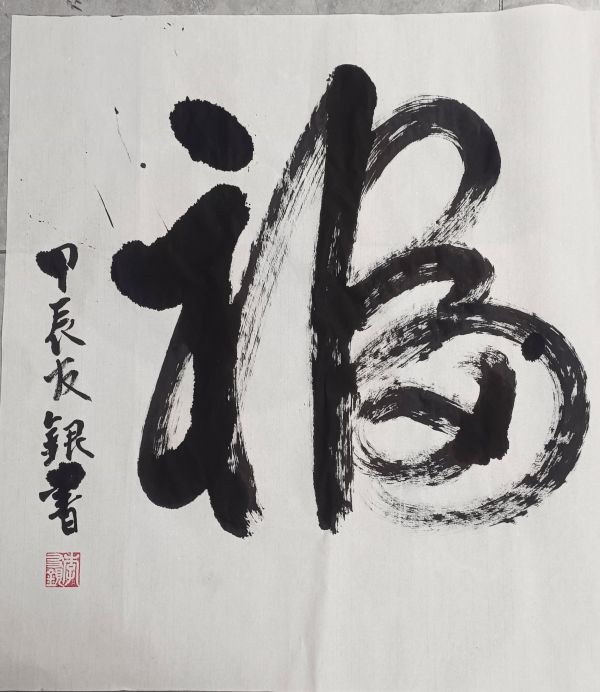 福
甲辰友銀書